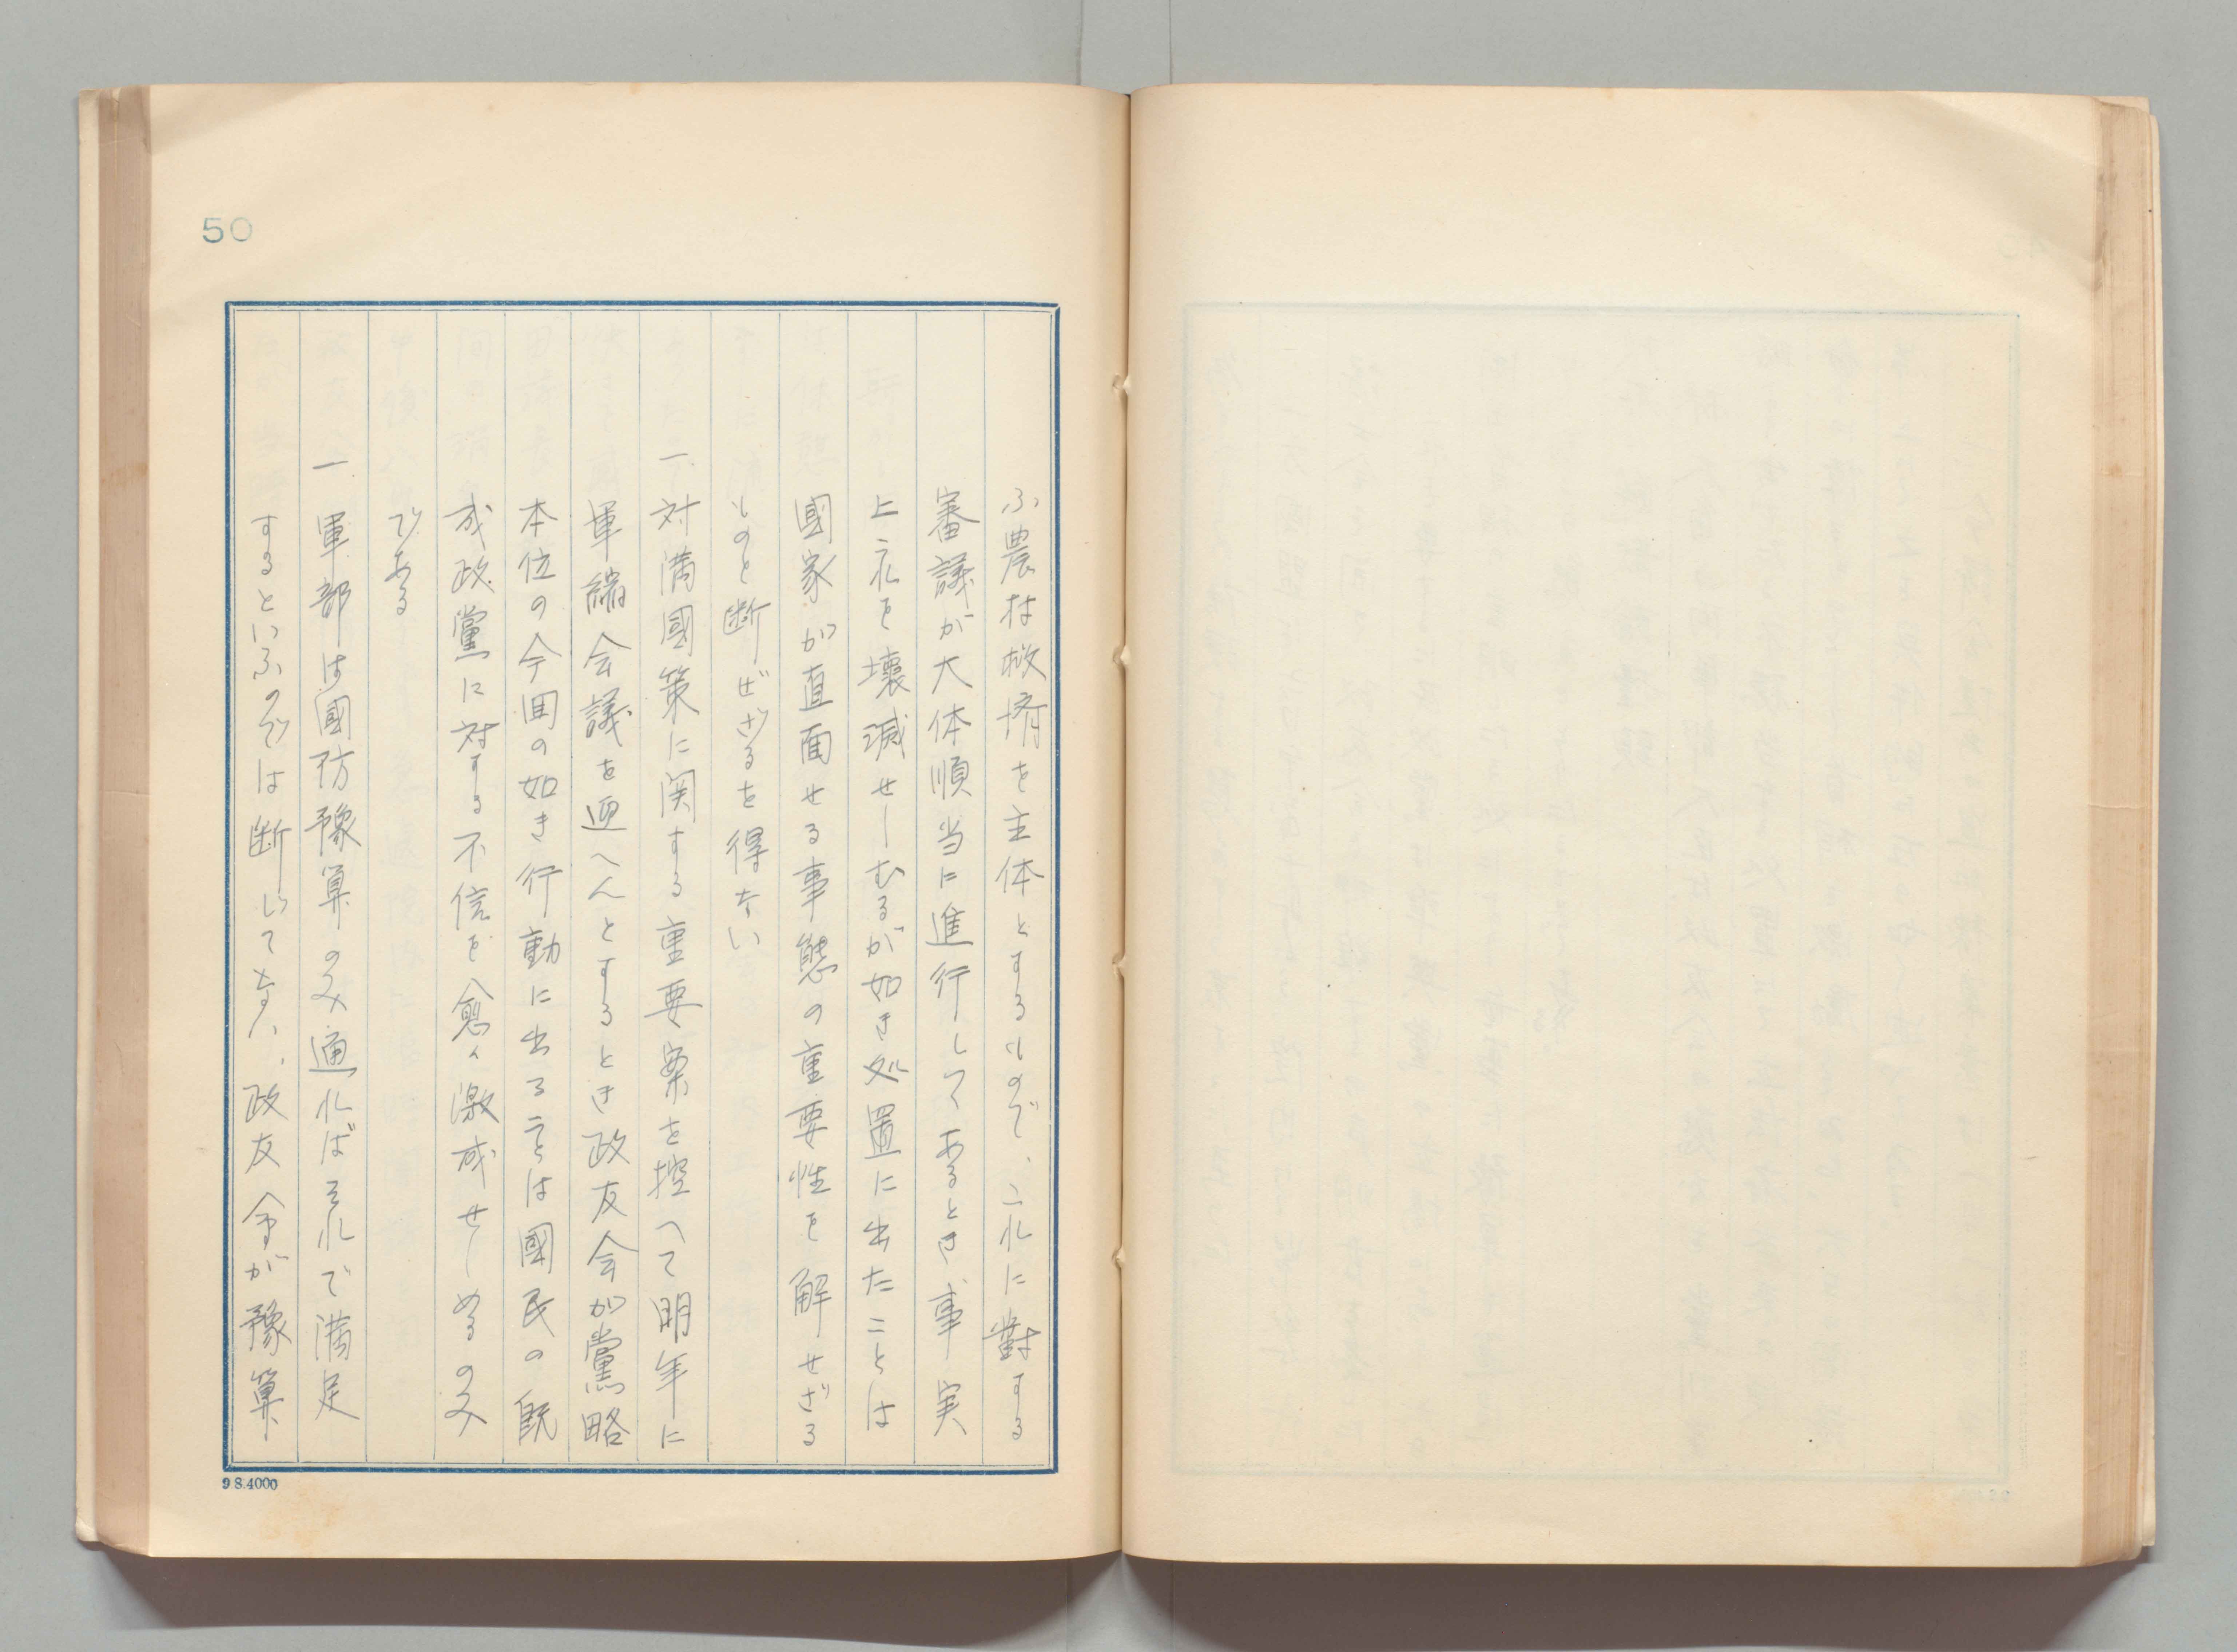 50
ふ農村救済を主体とするもので、これに對する
審議が大体順当に進行してあるとき事実
上之れを壊滅せしむるが如き処置に出たことは
國家が直面せる事態の重要性を解せざる
ものと断ぜざるを得ない
一 対満國策に関する重要案を控へて明年に
軍縮会議を迎へんとするとき政友会が黨略
本位の今回の如き行動に出ることは國民の既
成政黨に対する不信を愈々激成せしめるのみ
である
一 軍部は國防豫算のみ通ればそれで満足
するといふのでは断じてない、政友会が豫算
9.8.4000